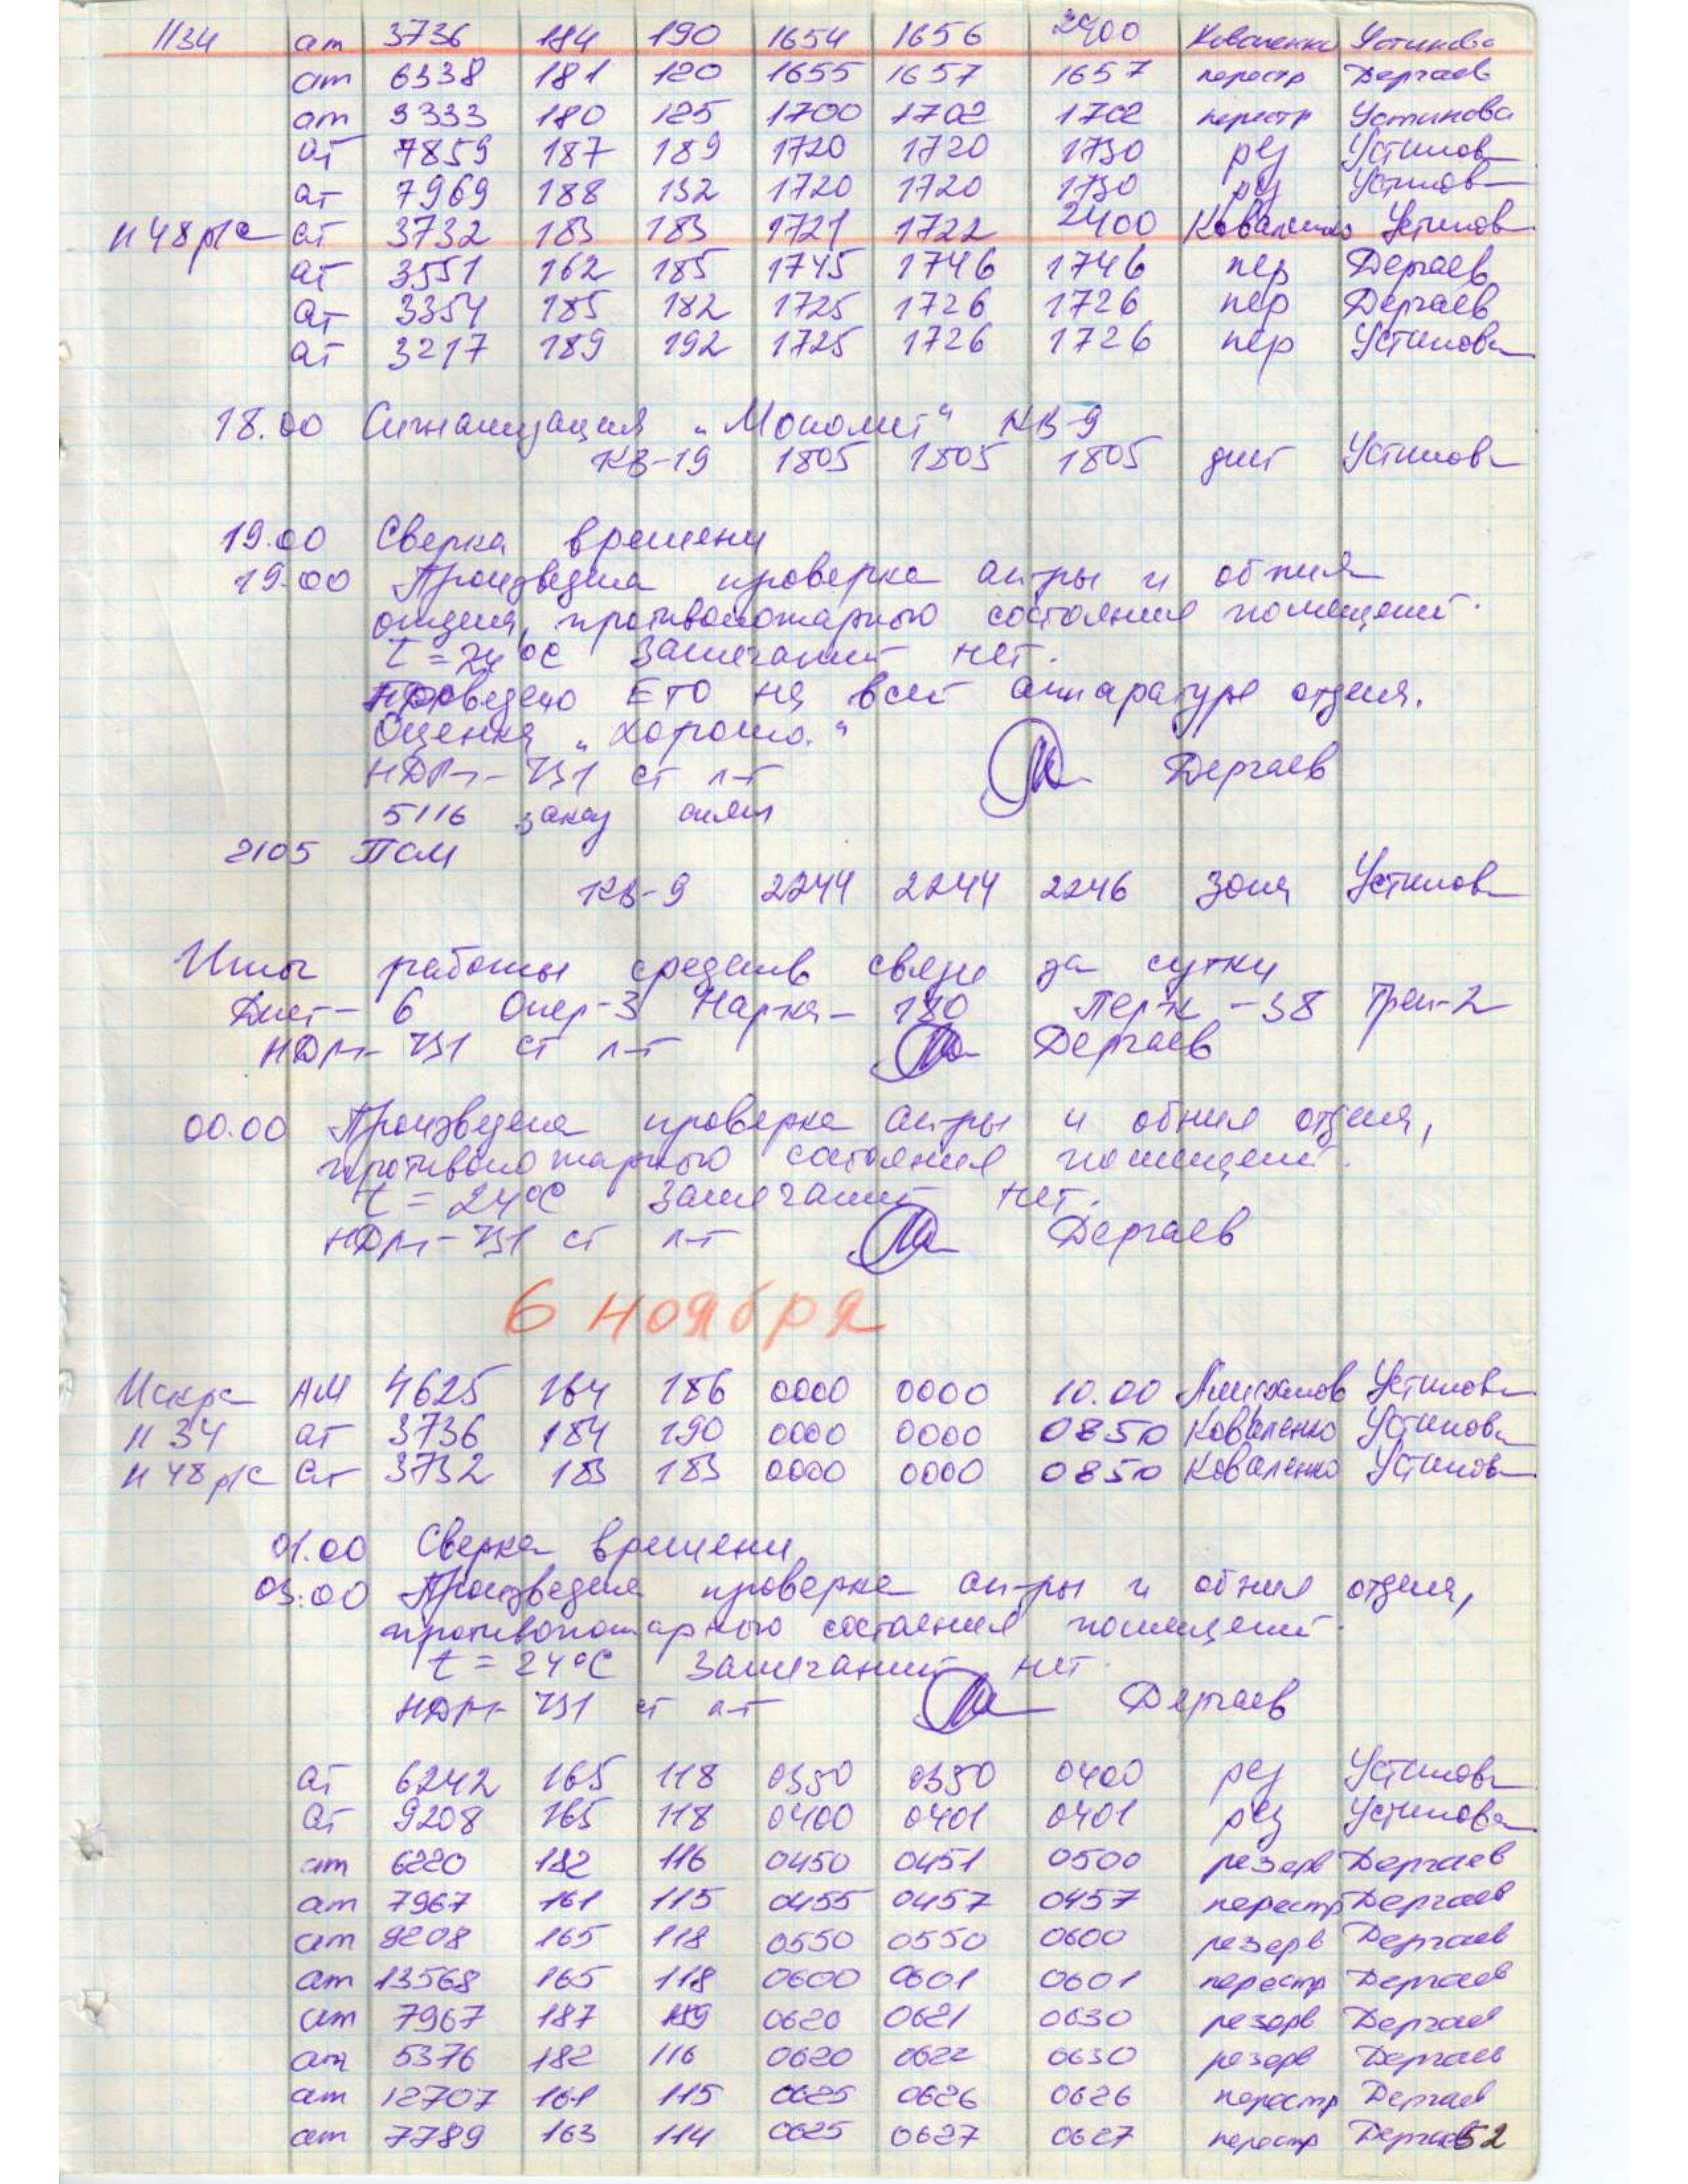 1134 ат 3736 184 190 1654 1656 2400 Коваленко Устинова
ат 6338 181 120 1655 1657 1657 перестр Дергаев
ат 9333 180 125 1700 1702 1702 перестр Устинова
ат 7859 187 189 1720 1720 1730 рез Устинова
ат 7969 188 192 1720 1720 1730 рез Устинова
1148 р/с ат 3732 183 183 1721 1722 2400 Коваленко Устинова
ат 3551 162 185 1745 1746 1746 пер Дергаев
ат 3354 185 182 1725 1726 1726 пер Дергаев
ат 3217 189 192 1725 1726 1726 пер Устинова
18.00 Сигнализация „Монолит“ КВ-9
КВ-19 1805 1805 1805 дист Устинова
19.00 Сверка времени
19.00 Произведена проверка ап-ры и обния
отдеия, противопожарного состояния помещений.
t = 24°C Замечаний нет.
Проведено ЕТО на всей аппаратуре отдеия.
Оценка „хорошо.“
НДРт-731 ст л-т Дергаев
5116 заказ снят
2105 ПСМ
КВ-9 2244 2244 2246 Зона Устинова
Итог работы средств связи за сутки
Дист- 6 Опер-3 Нарка- 180 Перж -38 Трен-2
НДРт-731 ст л-т Дергаев
00.00 Произведена проверка ап-ры и обния отдеия,
противопожарного состояния помещений.
t = 24°C Замечаний нет.
НДРт-731 ст л-т Дергаев
6 ноября
Искра АМ 4625 164 186 0000 0000 10.00 Устинова
1134 ат 3736 184 190 0000 0000 0850 Коваленко Устинова
1148 р/с ат 3732 183 183 0000 0000 0850 Коваленко Устинова
01.00 Сверка времени
03.00 Произведена проверка ап-ры и обния отдеия,
противопожарного состояния помещений.
t = 24°C Замечаний нет.
НДРт-731 ст л-т Дергаев
ат 6242 165 118 0350 0350 0400 рез Устинова
ат 9208 165 118 0400 0401 0401 рез Устинова
ат 6220 182 116 0450 0451 0500 резерв Дергаев
ат 7967 161 115 0455 0457 0457 перестр Дергаев
ат 9208 165 118 0550 0550 0600 резерв Дергаев
ат 13568 165 118 0600 0601 0601 перестр Дергаев
ат 7967 187 119 0620 0621 0630 резерв Дергаев
ат 5376 182 116 0620 0622 0630 резерв Дергаев
ат 12707 161 115 0625 0626 0626 перестр Дергаев
ат 7789 163 114 0625 0627 0627 перестр Дергаев 52